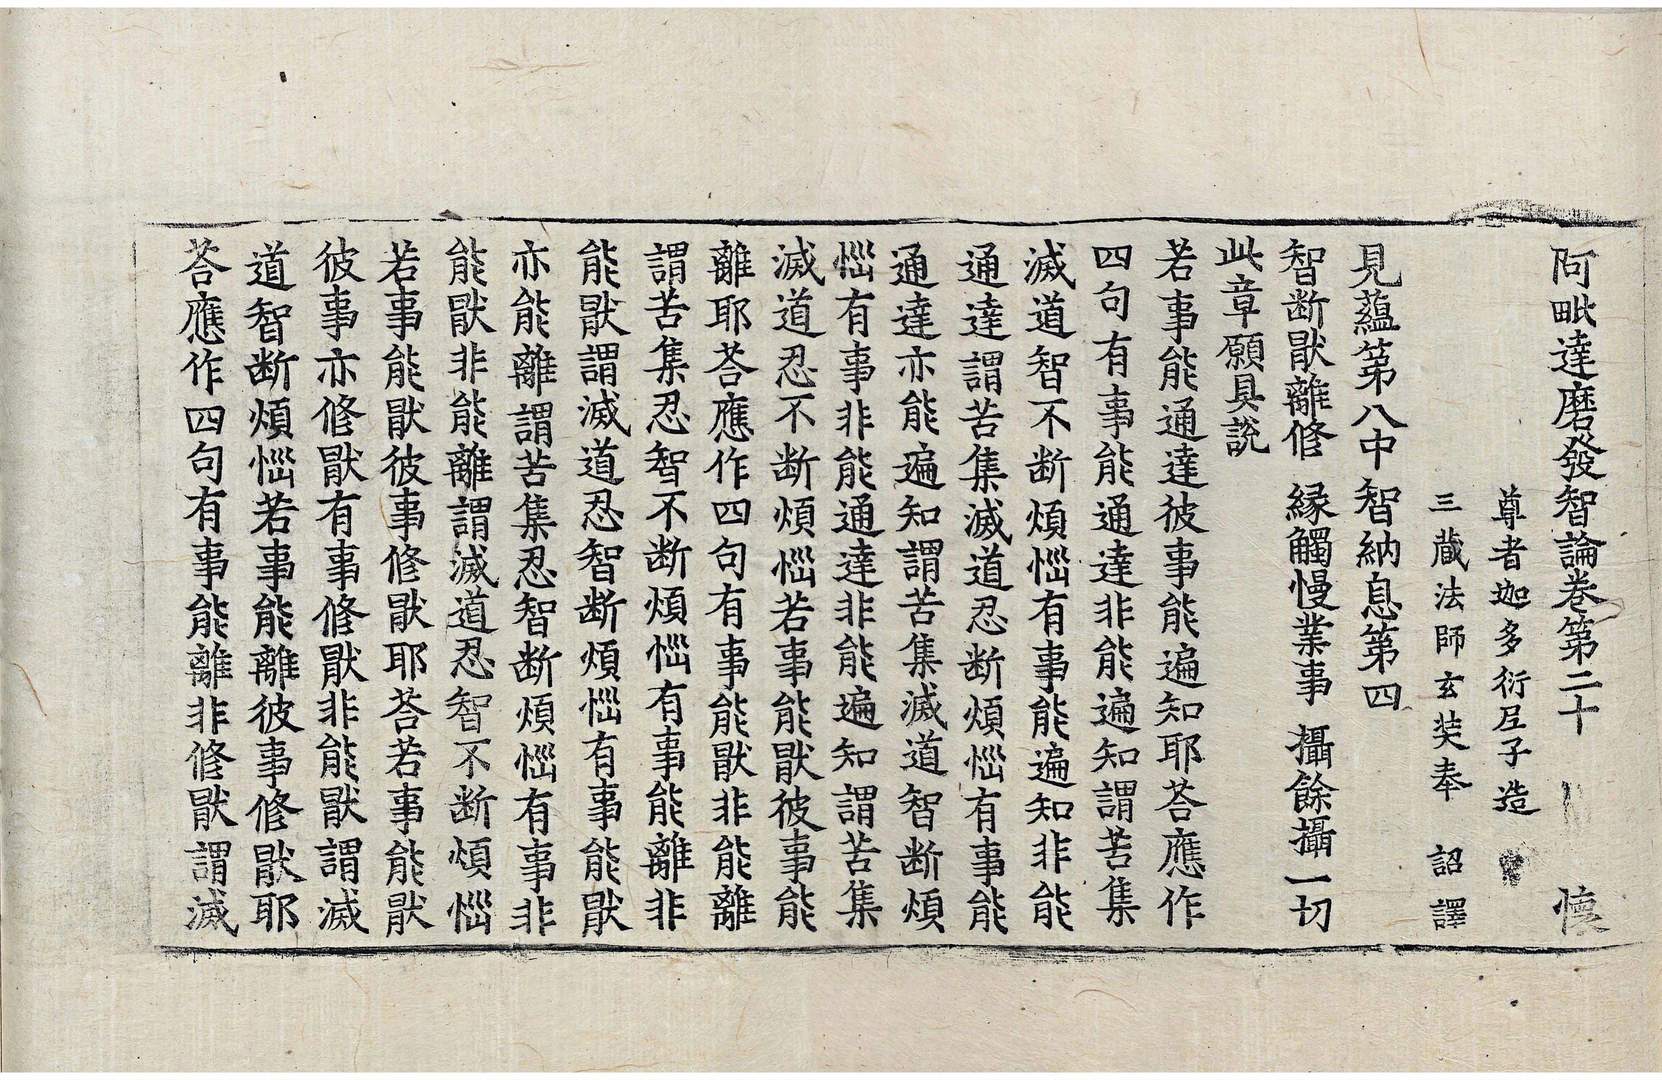 阿毗達磨發智論卷第二十 懷
尊者迦多衍𡰱子造
三藏法師玄奘奉 詔譯
見蘊第八中智納息第四
智断猒離修 縁觸慢業事 攝餘攝一切
此章願具說
若事能通達彼事能遍知耶荅應作
四句有事能通達非能遍知謂苦集
滅道智不断煩惱有事能遍知非能
通達謂苦集滅道忍断煩惱有事能
通達亦能遍知謂苦集滅道智断煩
惱有事非能通達非能遍知謂苦集
滅道忍不断煩惱若事能猒彼事能
離耶荅應作四句有事能猒非能離
謂苦集忍智不断煩惱有事能離非
能猒謂滅道忍智断煩惱有事能猒
亦能離謂苦集忍智断煩惱有事非
能猒非能離謂滅道忍智不断煩惱
若事能猒彼事修猒耶荅若事能猒
彼事亦修猒有事修猒非能猒謂滅
道智断煩惱若事能離彼事修猒耶
荅應作四句有事能離非修猒謂滅